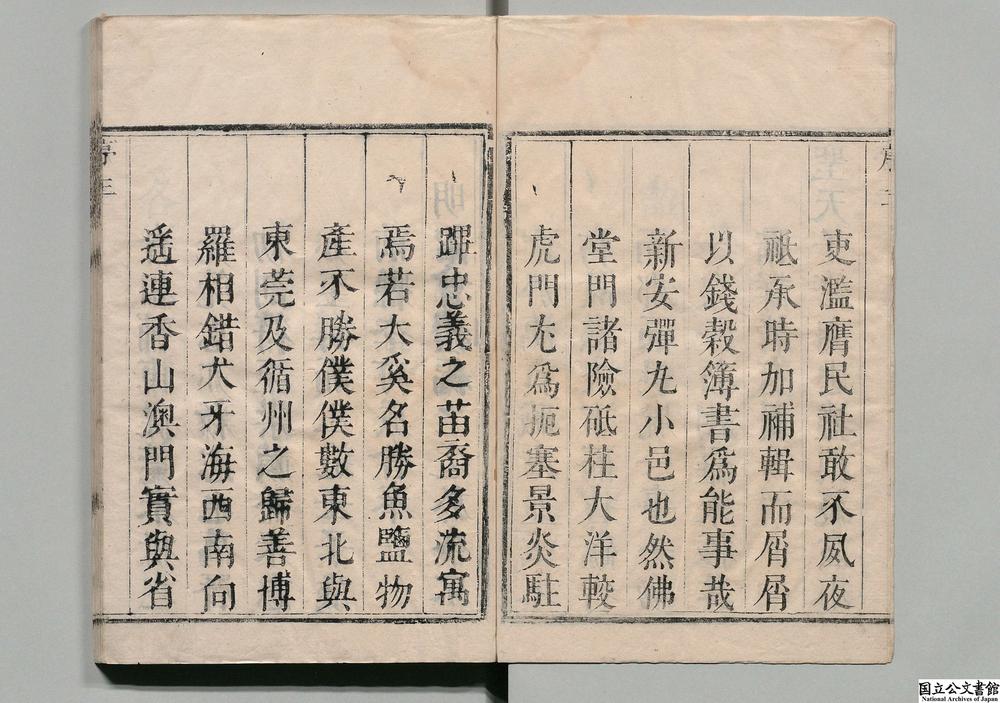 吏濫膺民社敢不夙夜
祗承時加補輯而屑屑
以錢穀簿書爲能事哉
新安彈丸小邑也然佛
堂門諸險砥柱大洋較
虎門尤爲扼塞景炎駐
蹕忠義之苗裔多流寓
焉若大奚名勝魚鹽物
產不勝僕僕數東北與
東莞及循州之歸善博
羅相錯犬牙海西南向
遥連香山澳門實與省
序三
国立公文書館
National Archives of Japan